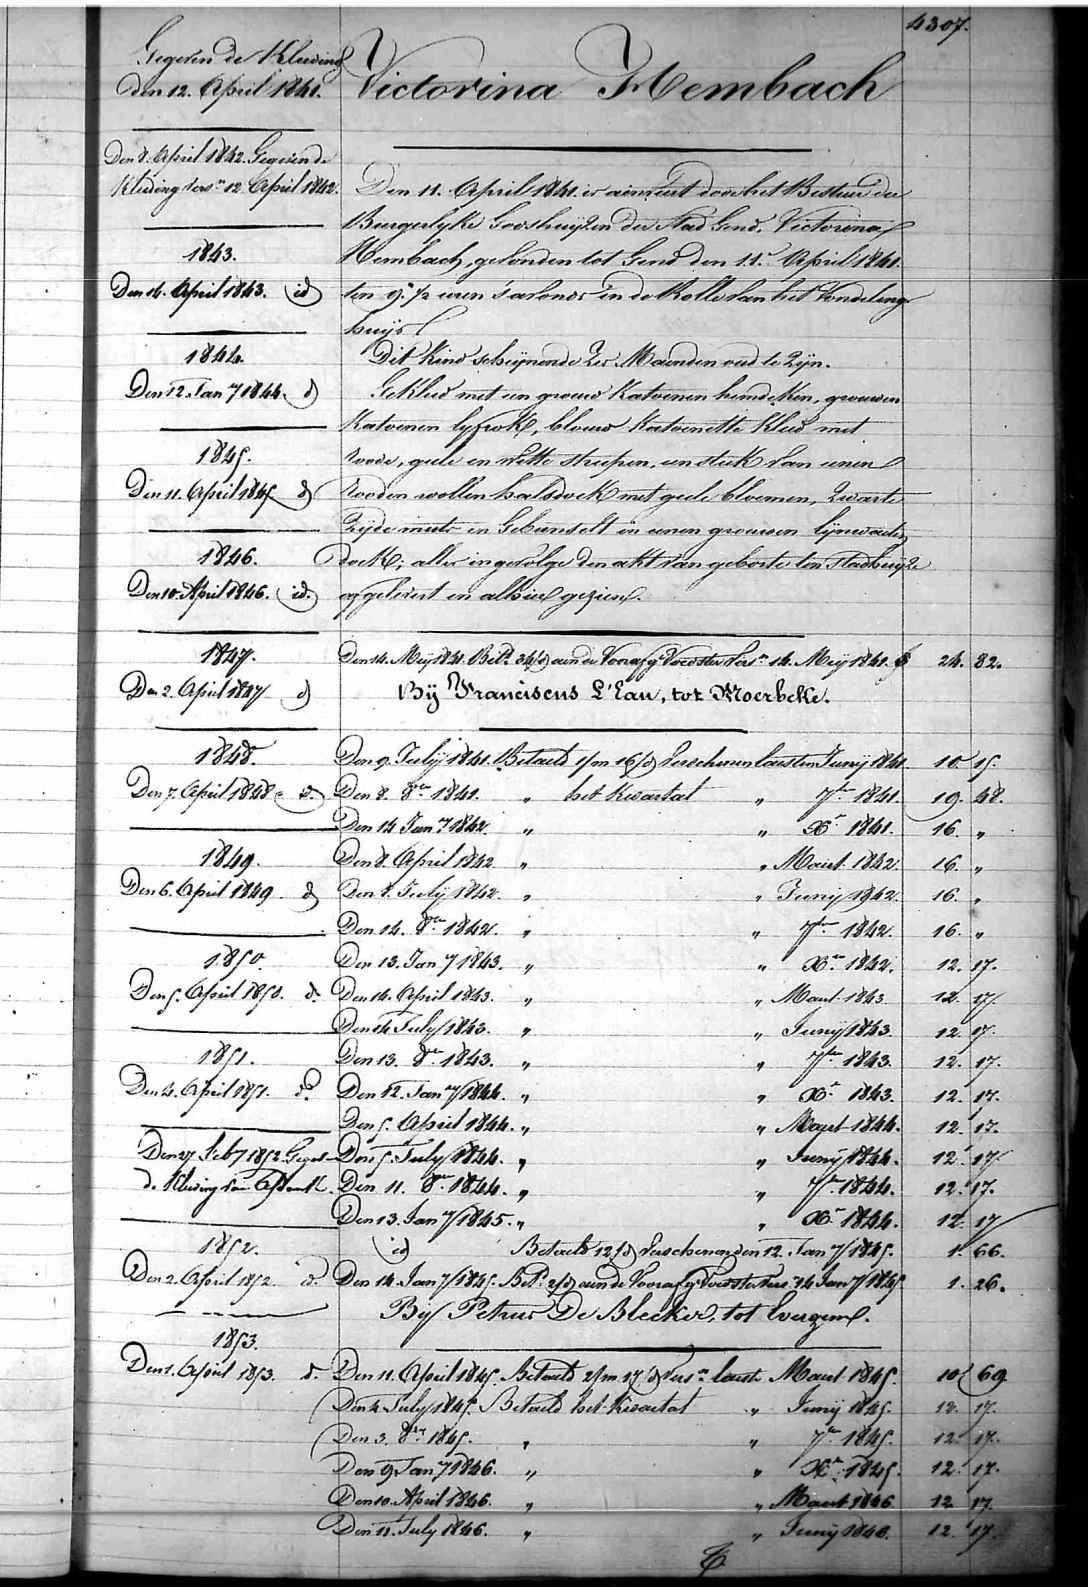 4307.
Gegeven de Kleeding
den 12. April 1841.
Victorina Hembach
Den 8. April 1842. Gegeven de
Kleeding vers.n 12 April 1842.
1843.
Den 14. April 1843. id
1844.
Den 12. Jan.y 1844. d
1845.
Den 11. April 1845 d
1846.
Den 10. April 1846. id.
1847.
Den 2. April 1847 d
1848.
Den 7. April 1848 d.
1849.
Den 6. April 1849 d
1850.
Den 5. April 1850. d.
1851.
Den 4. April 1851. d.
Den 27 Feb.y 1852 Gegev
d. Kleeding van
1852.
Den 2. April 1852. d.
1853.
Den 1. April 1853. d.
Den 11. April 1841. is aenveert door het Bestuur der
Burgerlyke Godshuyzen der Stad Gend. Victorina
Hembach, gevonden tot Gend den 11. April 1841.
ten 9. 1/2 uren 's avonds in de Rolle van het Vondeling
huys
Dit Kind schynende zes Maenden oud te zyn.
Gekleed met een grouw Katoenen hemdeken, grouwen
Katoenen lyfrok, blouw Katoenette Kleed met
roode, geele en witte streepen, een stuk van eenen
rooden wollen halsdoek met geele bloemen, zwarte
Zyde muts en Gebunselt in eenen grouwen lynwaeden
doek; alles ingevolge den akt van geboorte ten Stadhuyze
afgelevert en alhier gezien.
Den 14. Mey 1841. Bet.d 34/d aen de Voorafg. Voedster vers.n 14. Mey 1841. f 24. 32.
Bÿ Franciscus L'Eau, tot Moerbeke.
Den 9. July 1841. Betaeld 1/m 16/d verschenen laesten Juny 1841 10. 15.
Den 8. 8.er 1841. " het Kwartael " 7.er 1841. 19. 48.
Den 14 Jan.y 1842. " " X.r 1841. 16. "
Den 8. April 1842 " " Maert 1842. 16. "
Den 8. July 1842. " " Juny 1842. 16. "
Den 14. 8.er 1842. " " 7.er 1842. 16. "
Den 13. Jan.y 1843. " " X.er 1842. 12. 17.
Den 14. April 1843. " " Maert 1843 12. 17.
Den 14 July 1843. " " Juny 1843 12. 17.
Den 13. 8.er 1843. " " 7.er 1843. 12. 17.
Den 12. Jan.y 1844. " " X.r 1843. 12. 17.
Den 5. April 1844. " " Maert 1844. 12. 17.
Den 5. July 1844. " " Juny 1844. 12. 17
Den 11. 8.er 1844. " " 7.er 1844. 12. 17.
Den 13. Jan.y 1845. " " X.r 1844. 12. 17
id Betaeld 12/d verschenen den 12. Jan.y 1845. 1. 66.
Den 14. Jan.y 1845. Bet.d 2/d aen de Voorafg. Voedster vers.n 14 Jan.y 1845 1. 26.
By Petrus De Blecker, tot Evergem.
Den 11. April 1845. Betaeld 2/m 17/d vers.n laest. Maert 1845. 10 69
Den 4 July 1845. Betaeld het Kwartael " Juny 1845. 12. 17.
Den 3. 8.er 1845. " " 7.er 1845. 12. 17.
Den 9 Jan.y 1846. " " X.r 1845. 12. 17.
Den 10. April 1846. " " Maert 1846 12 17.
Den 11. July 1846. " " Juny 1846. 12. 17.